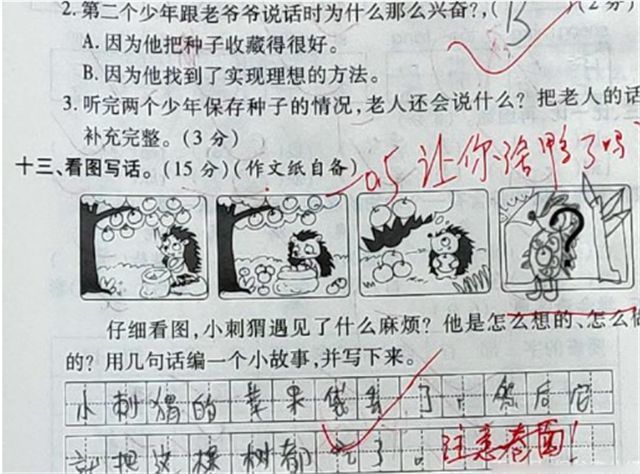 2. 第二个少年跟老爷爷说话时为什么那么兴奋?,( B )(2分)
A. 因为他把种子收藏得很好。
B. 因为他找到了实现理想的方法。
3. 听完两个少年保存种子的情况,老人还会说什么? 把老人的话
补充完整。(3分)
十三、看图写话。(15分)(作文纸自备)
-0.5 让你涂鸭了吗?
?
仔细看图,小刺猬遇见了什么麻烦? 他是怎么想的、怎么做
的? 用几句话编一个小故事,并写下来。
小刺猬的苹果袋丢了,然后它
就把这棵树都吃了。
注意卷面!